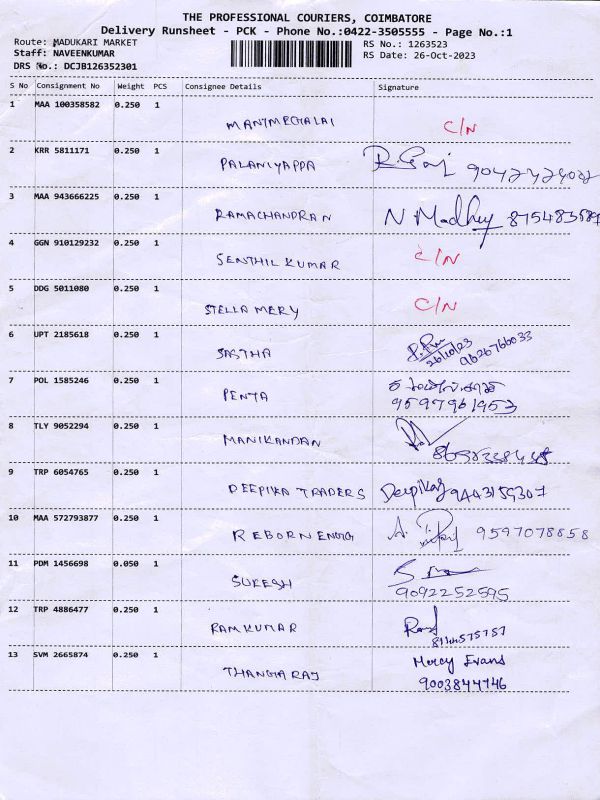 THE PROFESSIONAL COURIERS, COIMBATORE
Delivery Runsheet - PCK - Phone No.:0422-3505555 - Page No.:1
Route: MADUKARI MARKET RS No.: 1263523
Staff: NAVEENKUMAR RS Date: 26-Oct-2023
DRS No.: DCJB126352301
S No Consignment No Weight PCS Consignee Details Signature
1 MAA 100358582 0.250 1 MANIMEGHALAI C/N
2 KRR 5811171 0.250 1 PALANIYAPPA
3 MAA 943666225 0.250 1 RAMACHANDRAN N Madhey
4 GGN 910129232 0.250 1 SENTHIL KUMAR C/N
5 DDG 5011080 0.250 1 STELLA MERY C/N
6 UPT 2185618 0.250 1 SASTHA
26/10/23 9626766033
7 POL 1585246 0.250 1 PENTA
9597961953
8 TLY 9052294 0.250 1 MANIKANDAN
9 TRP 6054765 0.250 1 DEEPIKA TRADERS Deepika 9443159307
10 MAA 572793877 0.250 1 REBORN 9597078858
11 PDM 1456698 0.050 1 SUKESH
9092252595
12 TRP 4886477 0.250 1 RAMKUMAR
13 SVM 2665874 0.250 1 THANGARAJ Mercy Evans
9003844746